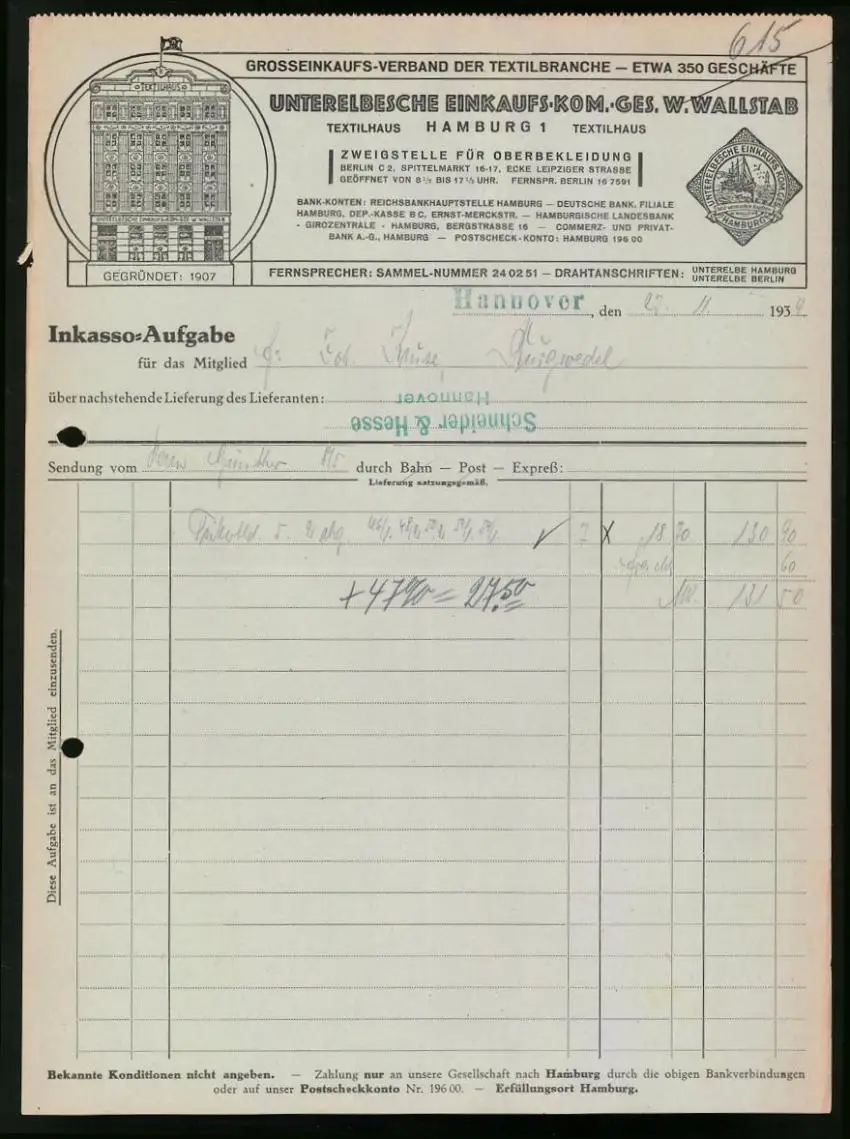 615
GROSSEINKAUFS-VERBAND DER TEXTILBRANCHE — ETWA 350 GESCHÄFTE
TEXTILHAUS
UNTERELBESCHE EINKAUFS-KOM.-GES. W. WALLSTAB
TEXTILHAUS HAMBURG 1 TEXTILHAUS
ZWEIGSTELLE FÜR OBERBEKLEIDUNG
BERLIN C 2, SPITTELMARKT 16-17, ECKE LEIPZIGER STRASSE
GEÖFFNET VON 8½ BIS 17½ UHR. FERNSPR. BERLIN 16 7591
BANK-KONTEN: REICHSBANKHAUPTSTELLE HAMBURG — DEUTSCHE BANK, FILIALE
HAMBURG, DEP.-KASSE B C, ERNST-MERCKSTR. — HAMBURGISCHE LANDESBANK
- GIROZENTRALE - HAMBURG, BERGSTRASSE 16 — COMMERZ- UND PRIVAT-
BANK A.-G., HAMBURG — POSTSCHECK-KONTO: HAMBURG 196 00
UNTERELBESCHE EINKAUFS-KOM.-GES. W. WALLSTAB
UNTERELBESCHE EINKAUFS KOM. GES.
HAMBURG
GEGRÜNDET: 1907
FERNSPRECHER: SAMMEL-NUMMER 24 02 51 — DRAHTANSCHRIFTEN: UNTERELBE HAMBURG
UNTERELBE BERLIN
Hannover, den 27. 11. 1934
Inkasso-Aufgabe
für das Mitglied Joh.
über nachstehende Lieferung des Lieferanten: Hannover
Schneider & Hesse
Sendung vom durch Bahn — Post — Expreß:
Lieferung satzungsgemäß.
7 × 18 70 130 90
60
+ 47% = 27.50 131 50
Diese Aufgabe ist an das Mitglied einzusenden.
Bekannte Konditionen nicht angeben. — Zahlung nur an unsere Gesellschaft nach Hamburg durch die obigen Bankverbindungen
oder auf unser Postscheckkonto Nr. 196 00. — Erfüllungsort Hamburg.